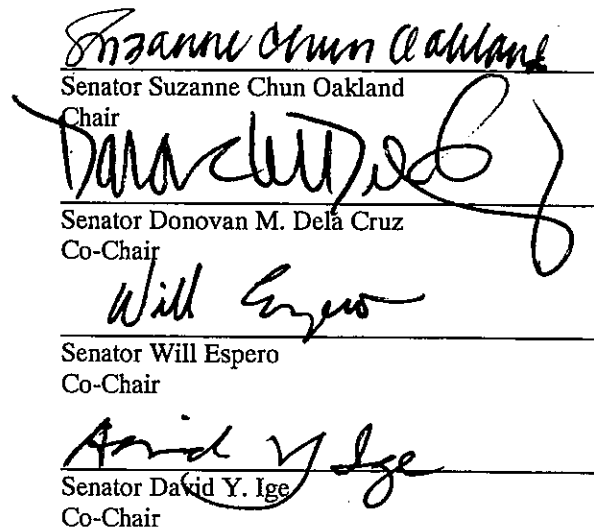 Suzanne Chun Oakland
Senator Suzanne Chun Oakland
Chair
Senator Donovan M. Dela Cruz
Co-Chair
Will Espero
Senator Will Espero
Co-Chair
David Y Ige
Senator David Y. Ige
Co-Chair